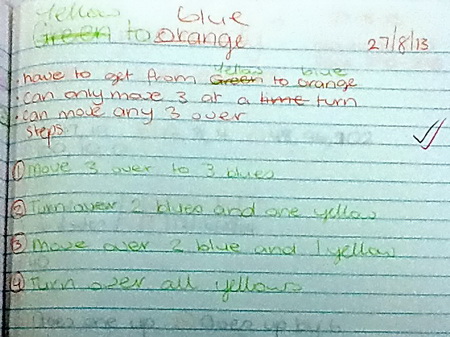 Yellow blue
Green to Orange
27/8/13
yellow blue
· have to get from Green to orange
· can only move 3 at a time turn
· can move any 3 over
steps
① Move 3 over to 3 blues
② Turn over 2 blues and one yellow
③ Move over 2 blue and 1 yellow
④ Turn over all yellows